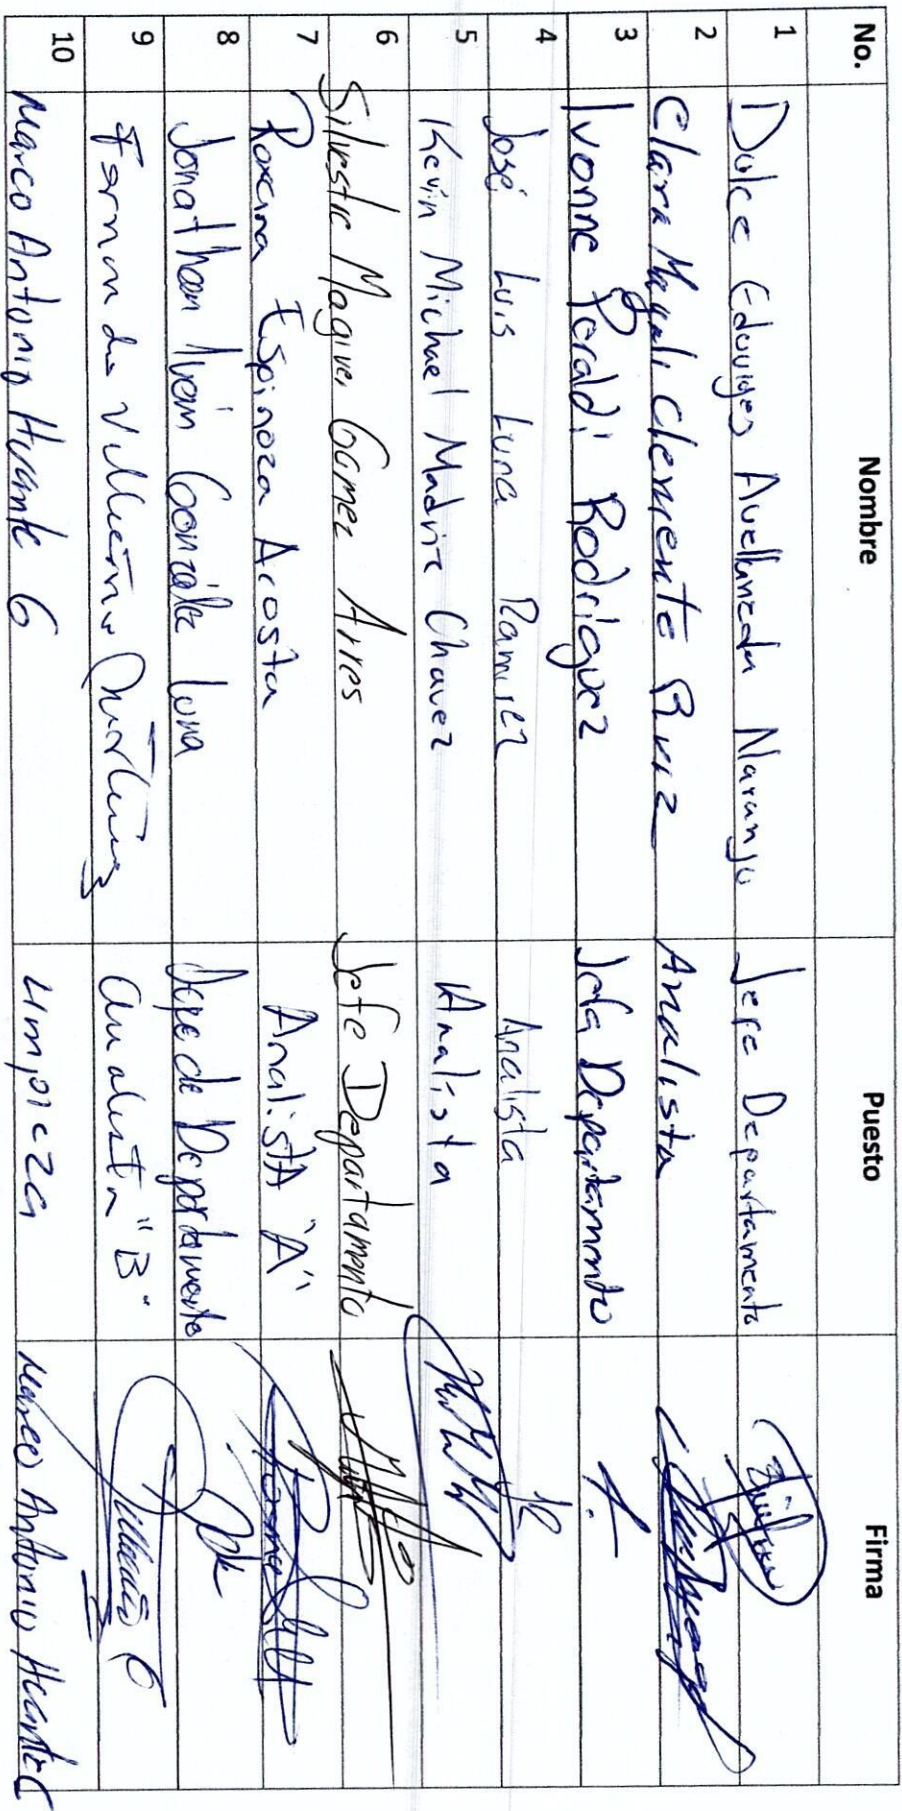 No. Nombre Puesto Firma
1 Dulce Eduviges Avellaneda Naranjo Jefe Departamento
2 Clara Magali Clemente Ruiz Analista
3 Ivonne Peraldi Rodriguez Jefa Departamento
4 José Luis Luna Ramirez Analista
5 Kevin Michael Madrid Chavez Analista
6 Silvestre Magiver Gamez Arres Jefe Departamento
7 Roxana Espinoza Acosta AnalistA "A"
8 Jonathan Iván González Luna Jefe de Departamento
9 Fernanda Villaseñor Martínez analista "B"
10 Marco Antonio Huante G Limpieza Marco Antonio Huante G